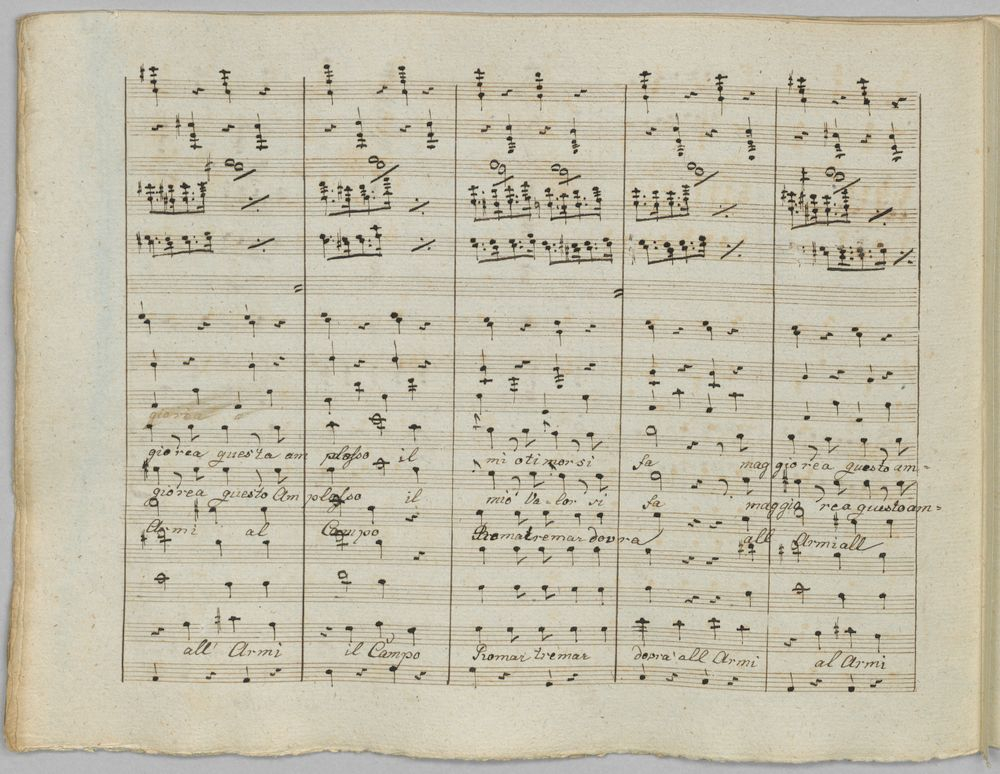 gior ea
gior ea questa am plesso il mi o timor si fa mag gio rea questo am=
gior ea questo Am plesso il mio Va-lor si fa maggio rea questo am=
Armi al Campo Roma tremar dovra all Armi all
all' Armi il Campo Roma tremar dovra' all Armi al Armi